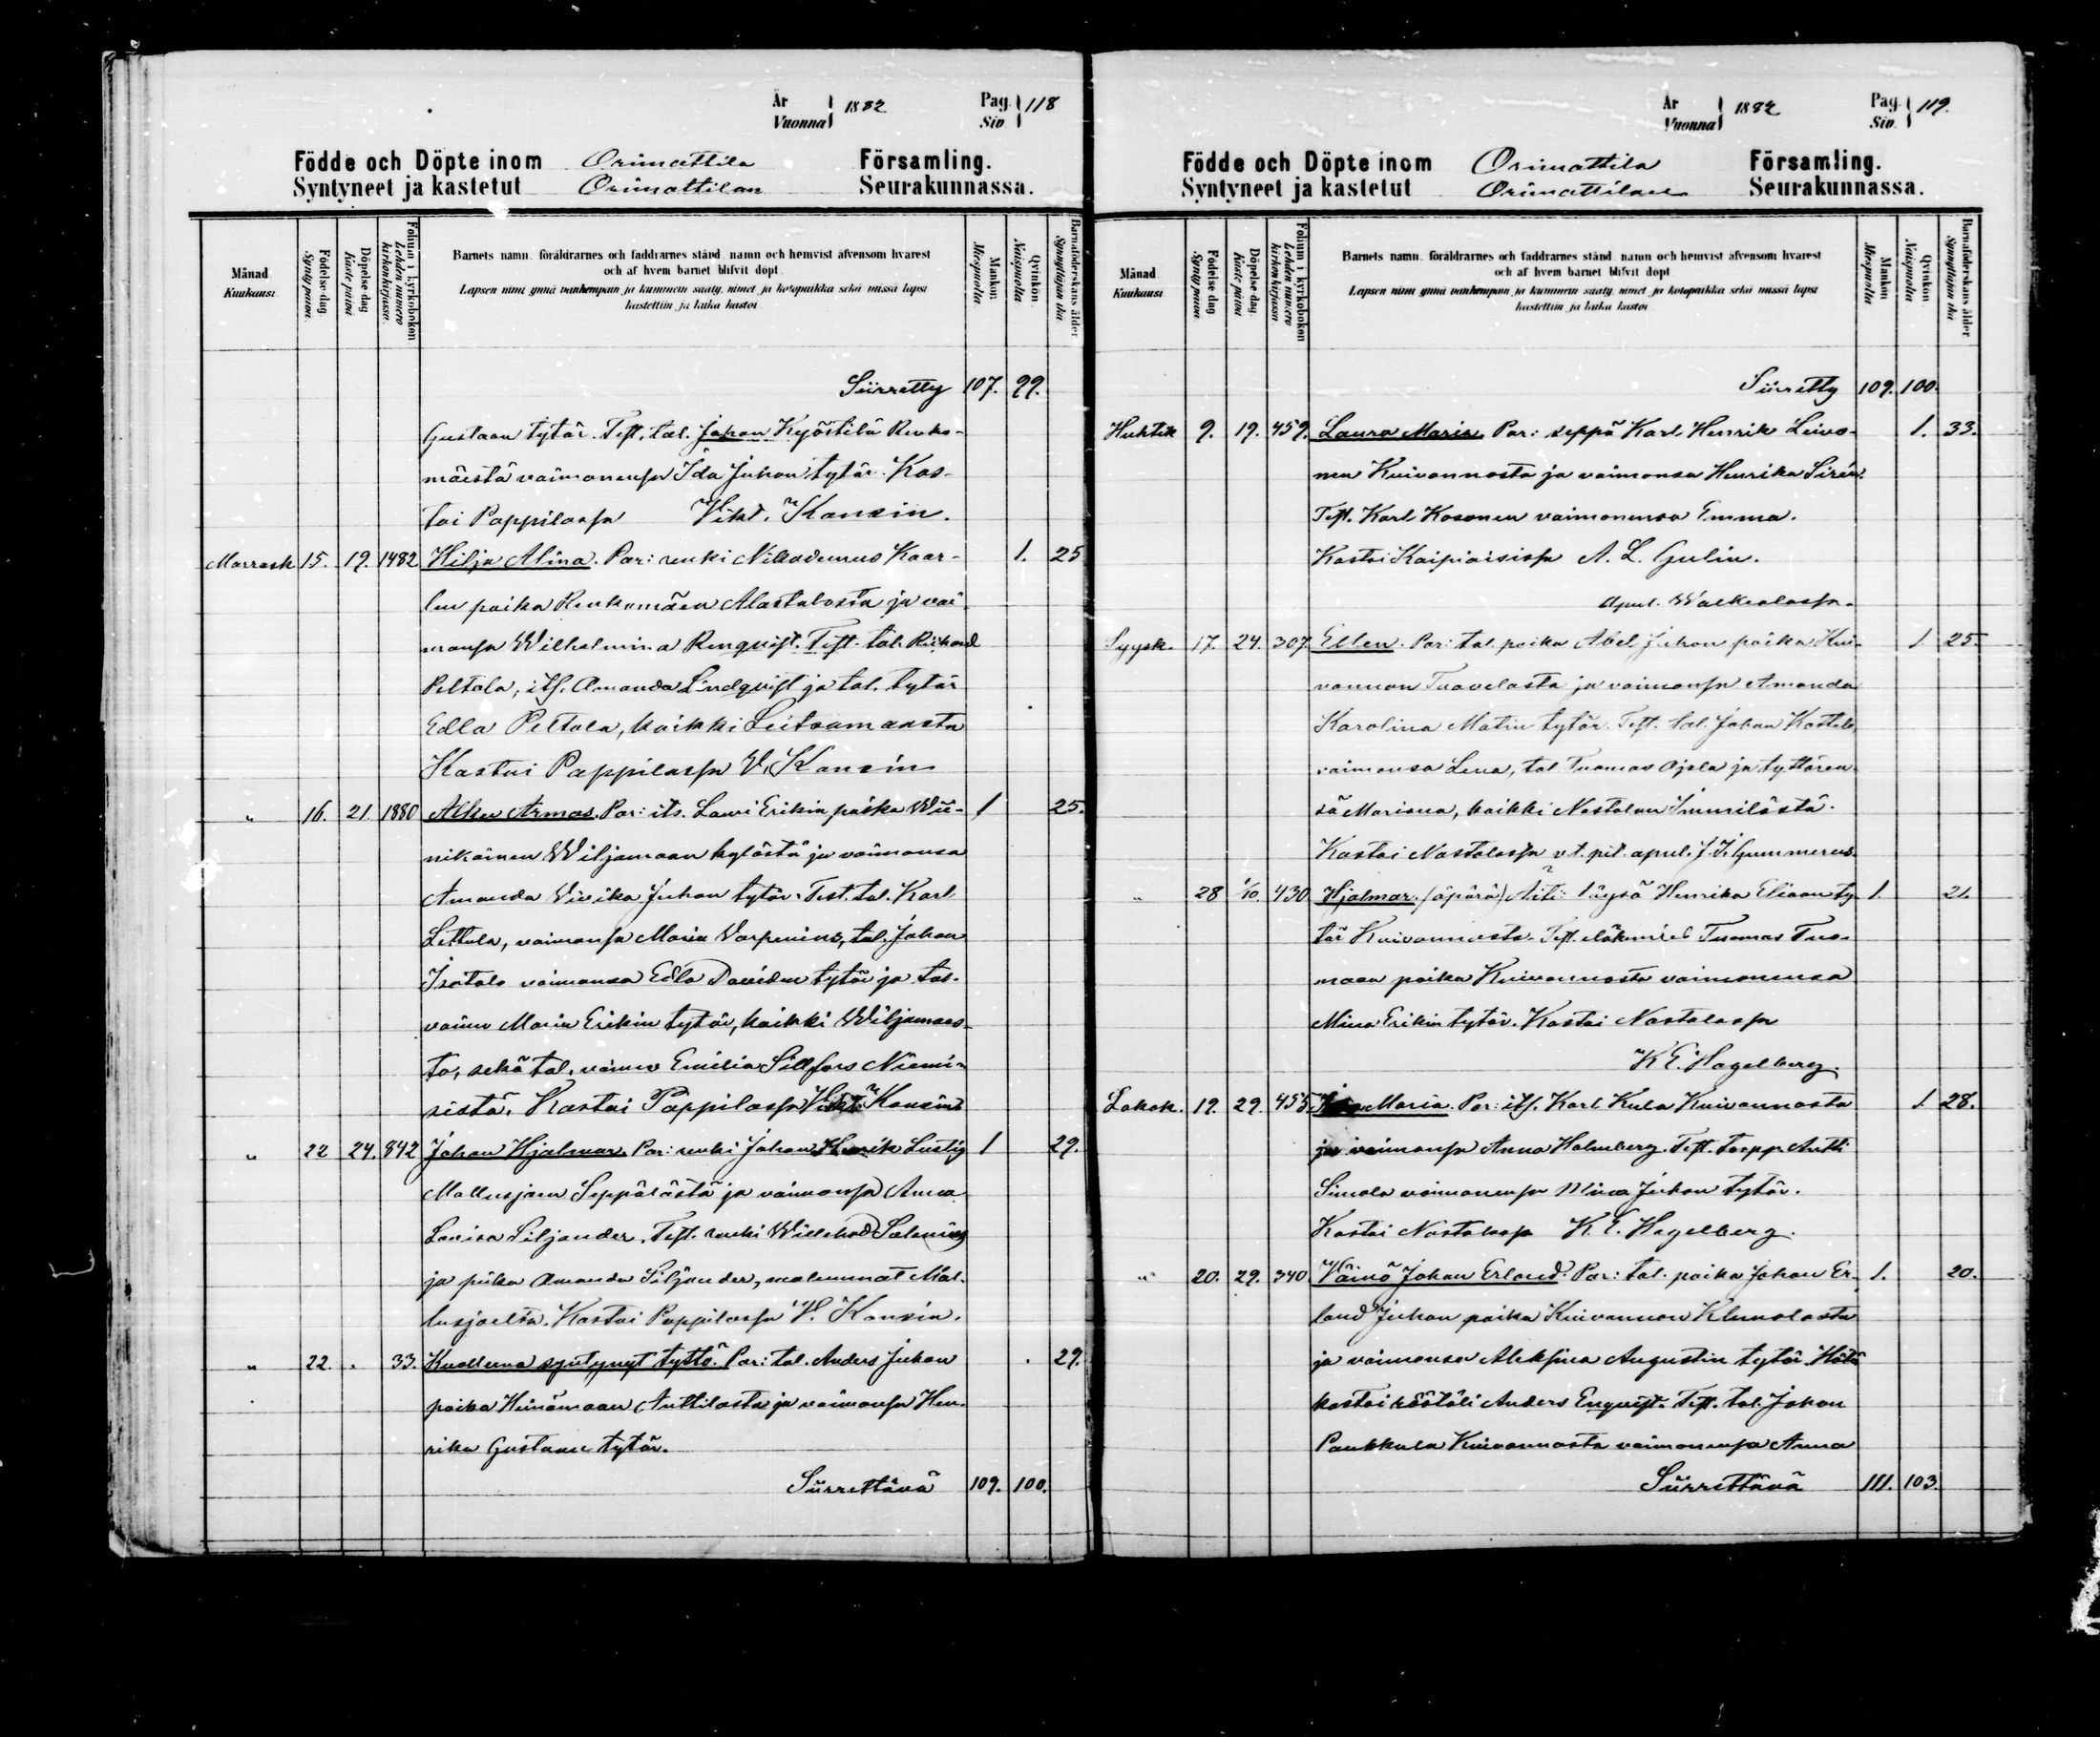 År
Vuonna } 1882
Pag.
Siv. } 118
Födde och Döpte inom Orimattila Församling.
Syntyneet ja kastetut Orimattilan Seurakunnassa.
Månad
Kuukausi
Födelse dag
Syntypäivä.
Döpelse dag
Kaste päivä
Folium i kyrkoboken
Lehden numero kirkonkirjassa.
Barnets namn, föräldrarnes och faddrarnes stånd, namn och hemvist äfvensom hvarest
och af hvem barnet blifvit döpt.
Lapsen nimi ynnä vanhempain ja kummein sääty, nimet ja kotopaikka sekä missä lapsi
kastettiin ja kuka kastoi
Mankön
Miespuolta.
Qvinkön
Naispuolta
Barnaföderskans ålder
Synnyttäjän ikä
Siirretty 107. 99.
Gustaan tytär. Test. tal. Johan Kyöstilä Renko-
mäestä vaimonensa Ida Juhon tytär. Kas-
toi Pappilassa Vikt. Kansin.
Marrask 15. 19. 1482 Hilja Alina. Par: renki Nikodemus Kaar- 1. 25
len poika Renkomäen Alastalosta ja vai
monsa Wilhelmina Renqvist. Test. tal. Rikhard
Peltola, its. Amanda Lindqvist ja tal. tytär
Edla Peltola, kaikki Leitsamaasta
Kastoi Pappilassa V. Kansin
" 16. 21. 1880 Armas. Par: its. Lauri Erikin poika Wii- 1 25.
nikainen Wiljamaan kylästä ja vaimonsa
Amanda Viviika Juhon tytär. Test. tal. Karl
Lettula, vaimonsa Maria Varpenius, tal. Johan
Isotalo vaimonsa Edla Davidin tytär ja tal.
vaimo Maria Erikin tytär, kaikki Wiljamaas-
ta, sekä tal. vaimo Emilia Sillfors Niemi-
sistä. Kastoi Pappilassa Vikt. Kansin
" 22 24. 842 Johan Hjalmar. Par: renki Johan Henrik Lustig 1 29.
Mallusjoen Seppälästä ja vaimonsa Anna
Lovisa Siljander. Test. renki Willehad Salenius
ja piika Amanda Siljander, molemmat Mal-
lusjoelta. Kastoi Pappilassa V. Kansin.
" 22. . 33. Kuolleena syntynyt tyttö. Par: tal. Anders Juhon . 29.
poika Heinämaan Anttilasta ja vaimonsa Hen-
rika Gustaan tytär.
Siirrettävä 109. 100.
År
Vuonna } 1882
Pag.
Siv. } 119.
Födde och Döpte inom Orimattila Församling.
Syntyneet ja kastetut Orimattilan Seurakunnassa.
Månad
Kuukausi
Födelse dag
Syntypäivä
Döpelse dag
Kaste päivä
Folium i kyrkoboken
Lehden numero kirkonkirjassa
Barnets namn, föräldrarnes och faddrarnes stånd, namn och hemvist äfvensom hvarest
och af hvem barnet blifvit döpt
Lapsen nimi ynnä vanhempain ja kummein sääty, nimet ja kotopaikka sekä missä lapsi
kastettiin ja kuka kastoi
Mankön
Miespuolta
Qvinkön
Naispuolta
Barnaföderskans ålder
Synnyttäjän ikä
Siirretty 109. 100.
Huhtik 9. 19. 459. Laura Maria. Par: seppä Karl Henrik Leivo- 1. 33.
nen Kuivannosta ja vaimonsa Henrika Sirén.
Test. Karl Kosonen vaimonensa Emma.
Kastoi Kaipiaisissa A. L. Gulin.
apul. Walkealassa.
Syysk. 17. 24. 307. Ellen. Par: tal. poika Abel Juhon poika Kui- 1 25.
vannon Tuovelasta ja vaimonsa Amanda
Karolina Matin tytär. Test. tal. Johan
vaimonsa Lena, tal. Tuomas Ojala ja tyttären-
sä Mariana, kaikki Nastolan Immilästä.
Kastoi Nastolassa v.t. pit. apul. J. I. Gummerus.
" 28 1/10. 430 Hjalmar. (äpärä) Äiti: Henrika Eliaan ty- 1. 21.
tär Kuivannosta. Test. Tuomas Tuo-
maan poika Kuivannosta vaimonensa
Mina Erikin tytär. Kastoi Nastolassa
K E. Hagelberg.
Lokok. 19. 29. 455. Maria. Par: its. Karl Kula Kuivannosta 1. 28.
ja vaimonsa Anna Holmberg. Test. torpp. Antti
Simola vaimonensa Mina Juhon tytär.
Kastoi Nastolassa K. E. Hagelberg.
" 20. 29. 340. Väinö Johan Erland. Par: tal. poika Johan Er- 1. 20.
land Juhon poika Kuivannon Klemolasta
ja vaimonsa Aleksina Augustin tytär. Hätä
kastoi räätäli Anders Enqvist. Test. tal. Johan
Paukkula Kuivannosta vaimonensa Anna
Siirrettävä 111. 103.